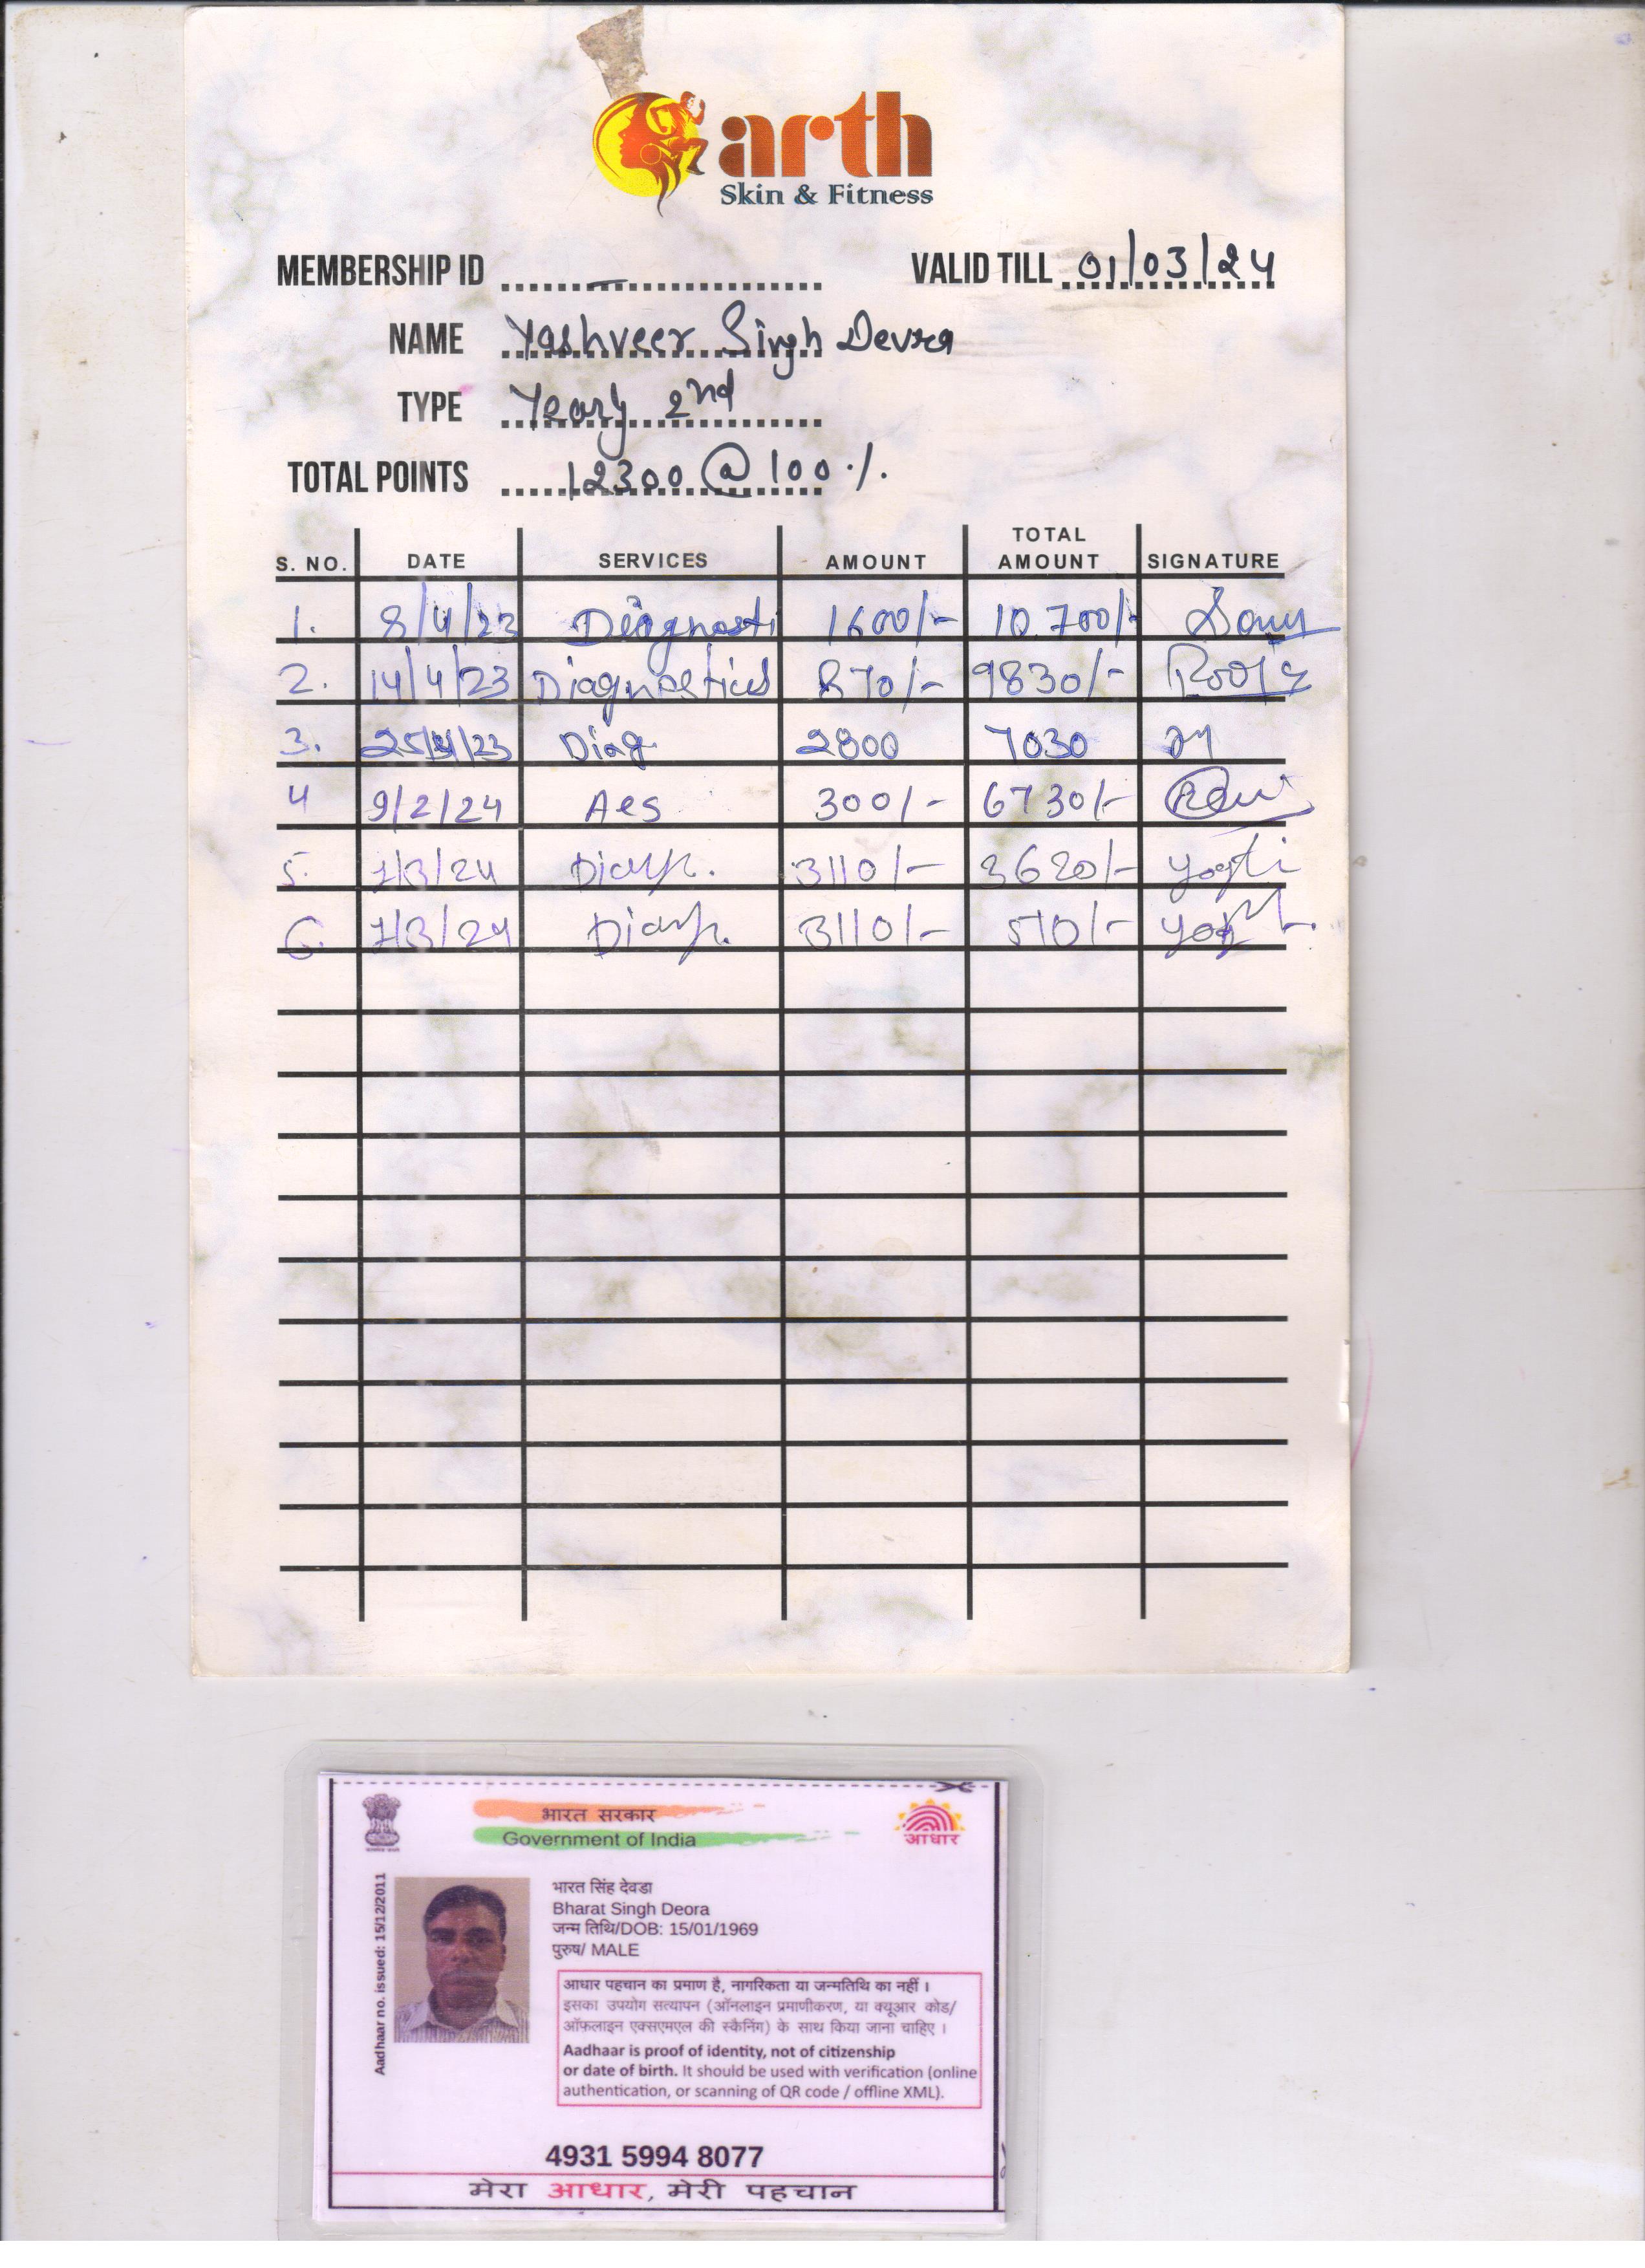 arth
Skin & Fitness
MEMBERSHIP ID VALID TILL 01/03/24
NAME Yashveer Singh Devra
TYPE Yearly 2nd
TOTAL POINTS 12300 @ 100 %
S. NO. DATE SERVICES AMOUNT TOTAL AMOUNT SIGNATURE
1. 8/4/23 Diagnosti 1600/- 10700/-
2. 14/4/23 Diagnostics 870/- 9830/-
3. 25/4/23 Diag 2800 7030
4 9/2/24 Aes 300/- 6730/-
5. 1/3/24 3110/- 3620/-
6. 1/3/24 3110/- 510/-
भारत सरकार
Government of India
आधार
Aadhaar no. issued: 15/12/2011
भारत सिंह देवडा
Bharat Singh Deora
जन्म तिथि/DOB: 15/01/1969
पुरुष/ MALE
आधार पहचान का प्रमाण है, नागरिकता या जन्मतिथि का नहीं ।
इसका उपयोग सत्यापन (ऑनलाइन प्रमाणीकरण, या क्यूआर कोड/
ऑफलाइन एक्सएमएल की स्कैनिंग) के साथ किया जाना चाहिए ।
Aadhaar is proof of identity, not of citizenship
or date of birth. It should be used with verification (online
authentication, or scanning of QR code / offline XML).
4931 5994 8077
मेरा आधार, मेरी पहचान